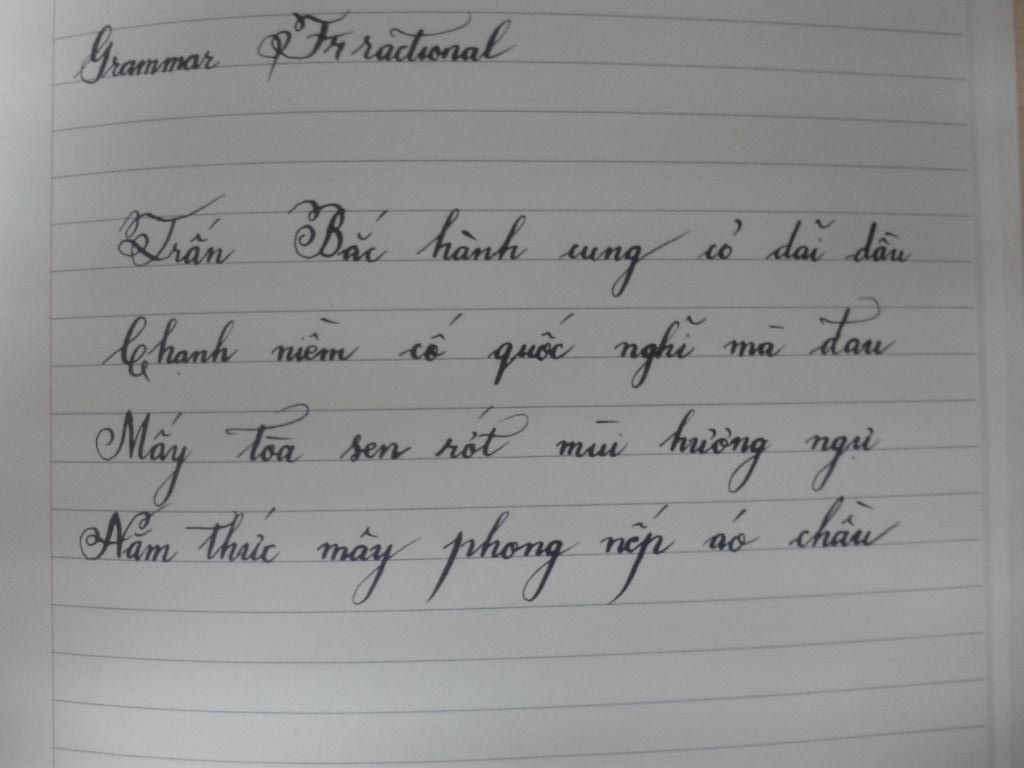 Grammar Fractional
Trấn Bắc hành cung cỏ dãi dầu
Chạnh niềm cố quốc nghĩ mà đau
Mấy tòa sen rớt mùi hương ngự
Năm thức mây phong nếp áo chầu